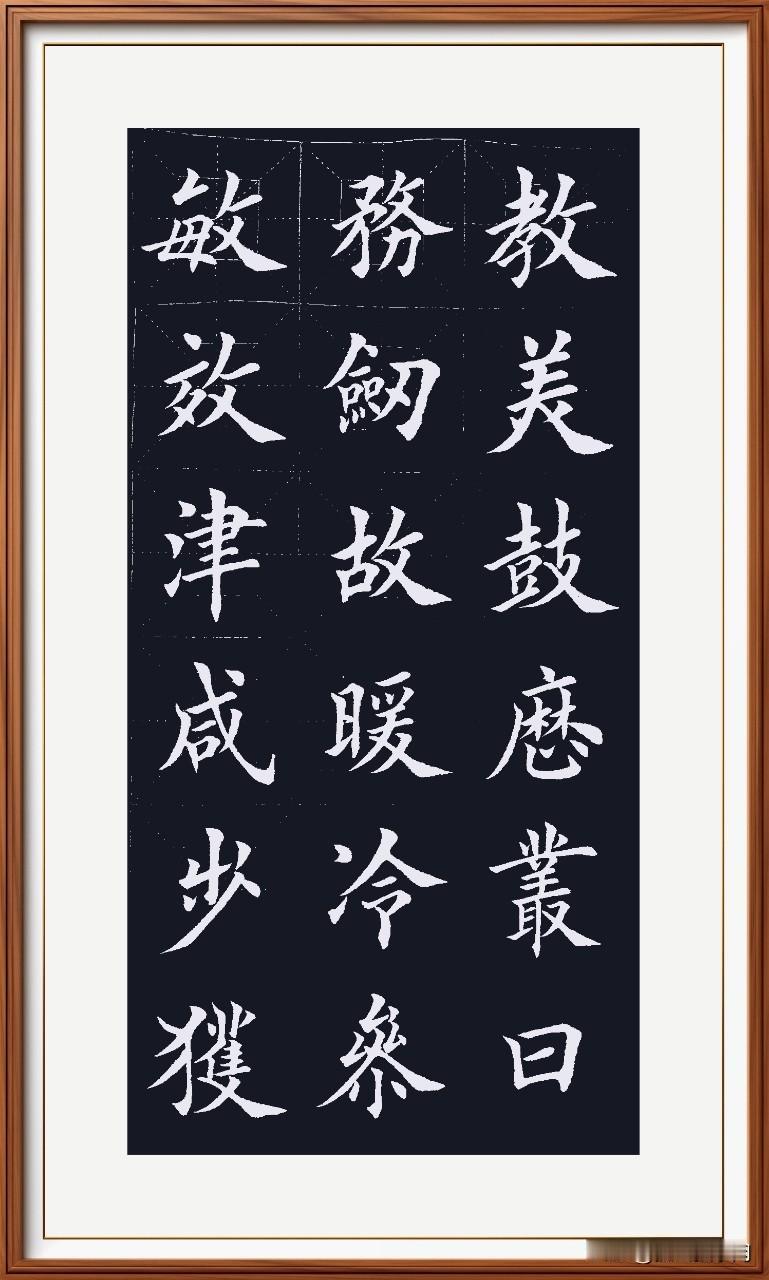 教美鼓叢曰
務劒故暖冷參
敏效津咸步獲